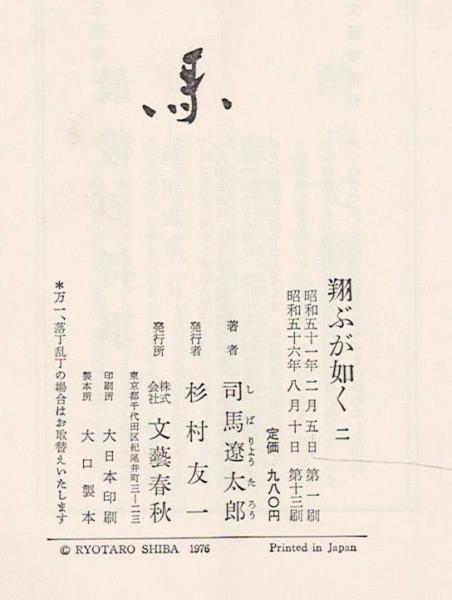 馬
翔ぶが如く 二
昭和五十一年二月五日 第一刷
昭和五十六年八月十日 第十三刷
定価 九八〇円
著者 司馬遼太郎
しばりようたろう
発行者 杉村友一
発行所 株式会社 文藝春秋
東京都千代田区紀尾井町三―二三
印刷所 大日本印刷
製本所 大口製本
*万一、落丁乱丁の場合はお取替えいたします
© RYOTARO SHIBA 1976 Printed in Japan